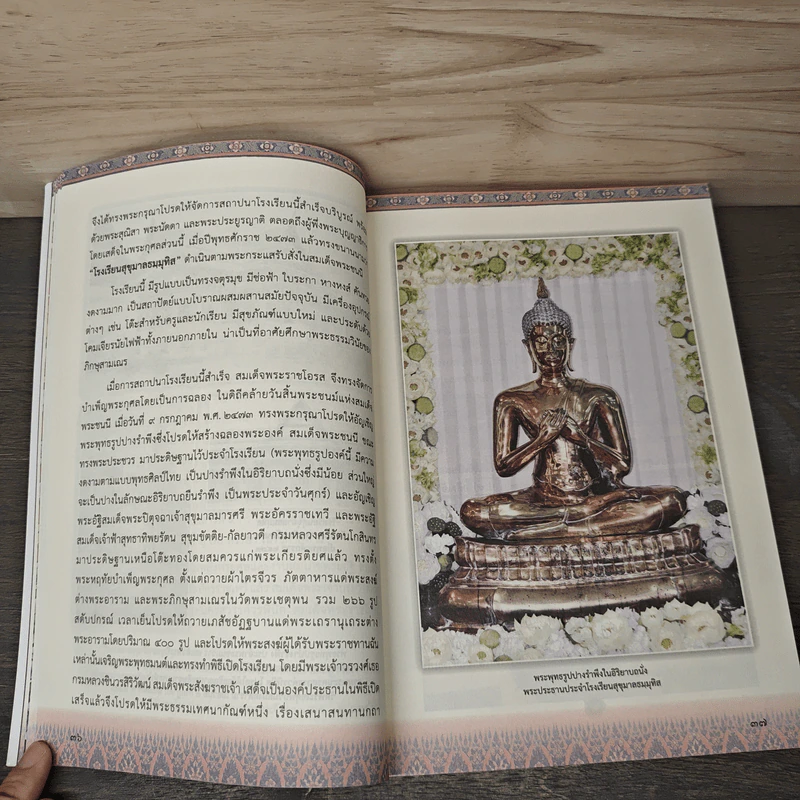 จึงได้ทรงพระกรุณาโปรดให้จัดการสถาปนาโรงเรียนนี้สำเร็จบริบูรณ์
ด้วยพระสุณิสา พระนัดดา และพระประยูรญาติ ตลอดถึงผู้พึ่งพระบุญญาธิ
โดยเสด็จในพระกุศลส่วนนี้ เมื่อปีพุทธศักราช ๒๔๗๓ แล้วทรงขนานนาม
“โรงเรียนสุขุมาลธมมุทิส” ดำเนินตามพระกระแสรับสั่งในสมเด็จพระชนนี
โรงเรียนนี้ มีรูปแบบเป็นทรงจตุรมุข มีช่อฟ้า ใบระกา หางหงส์ คันทวย
งดงามมาก เป็นสถาปัตย์แบบโบราณผสมผสานสมัยปัจจุบัน มีเครื่องอุปกรณ์
ต่างๆ เช่น โต๊ะสำหรับครูและนักเรียน มีสุขภัณฑ์แบบใหม่ และประดับด้วย
โคมเจียรนัยไฟฟ้าทั้งภายนอกภายใน น่าเป็นที่อาศัยศึกษาพระธรรมวินัยของ
ภิกษุสามเณร
เมื่อการสถาปนาโรงเรียนนี้สำเร็จ สมเด็จพระราชโอรส จึงทรงจัดการ
บำเพ็ญพระกุศลโดยเป็นการฉลอง ในดิถีคล้ายวันสิ้นพระชนม์แห่งสมเด็จ
พระชนนี เมื่อวันที่ ๙ กรกฎาคม พ.ศ. ๒๔๗๓ ทรงพระกรุณาโปรดให้อัญเชิญ
พระพุทธรูปปางรำพึงซึ่งโปรดให้สร้างฉลองพระองค์ สมเด็จพระชนนี ขณะ
ทรงพระประชวร มาประดิษฐานไว้ประจำโรงเรียน (พระพุทธรูปองค์นี้ มีความ
งดงามตามแบบพุทธศิลป์ไทย เป็นปางรำพึงในอิริยาบถนั่งซึ่งมีน้อย ส่วนใหญ่
จะเป็นปางในลักษณะอิริยาบถยืนรำพึง เป็นพระประจำวันศุกร์) และอัญเชิญ
พระอัฐิสมเด็จพระปิตุจฉาเจ้าสุขุมาลมารศรี พระอัครราชเทวี และพระอัฐิ
สมเด็จเจ้าฟ้าสุทธาทิพยรัตน สุขุมขัตติย-กัลยาวดี กรมหลวงศรีรัตนโกสินทร
มาประดิษฐานเหนือโต๊ะทองโดยสมควรแก่พระเกียรติยศแล้ว ทรงตั้ง
พระหฤทัยบำเพ็ญพระกุศล ตั้งแต่ถวายผ้าไตรจีวร ภัตตาหารแด่พระสงฆ์
ต่างพระอาราม และพระภิกษุสามเณรในวัดพระเชตุพน รวม ๒๖๖ รูป
สดับปกรณ์ เวลาเย็นโปรดให้ถวายเภสัชอัฏฐบานแด่พระเถรานุเถระต่าง
พระอารามโดยปริมาณ ๔๐๐ รูป และโปรดให้พระสงฆ์ผู้ได้รับพระราชทานฉัน
เหล่านั้นเจริญพระพุทธมนต์และทรงทำพิธีเปิดโรงเรียน โดยมีพระเจ้าวรวงศ์เธอ
กรมหลวงชินวรสิริวัฒน์ สมเด็จพระสังฆราชเจ้า เสด็จเป็นองค์ประธานในพิธีเปิด
เสร็จแล้วจึงโปรดให้มีพระธรรมเทศนากัณฑ์หนึ่ง เรื่องเสนาสนทานกถา
๓๖
พระพุทธรูปปางรำพึงในอิริยาบถนั่ง
พระประธานประจำโรงเรียนสุขุมาลธมมุทิส
๓๗